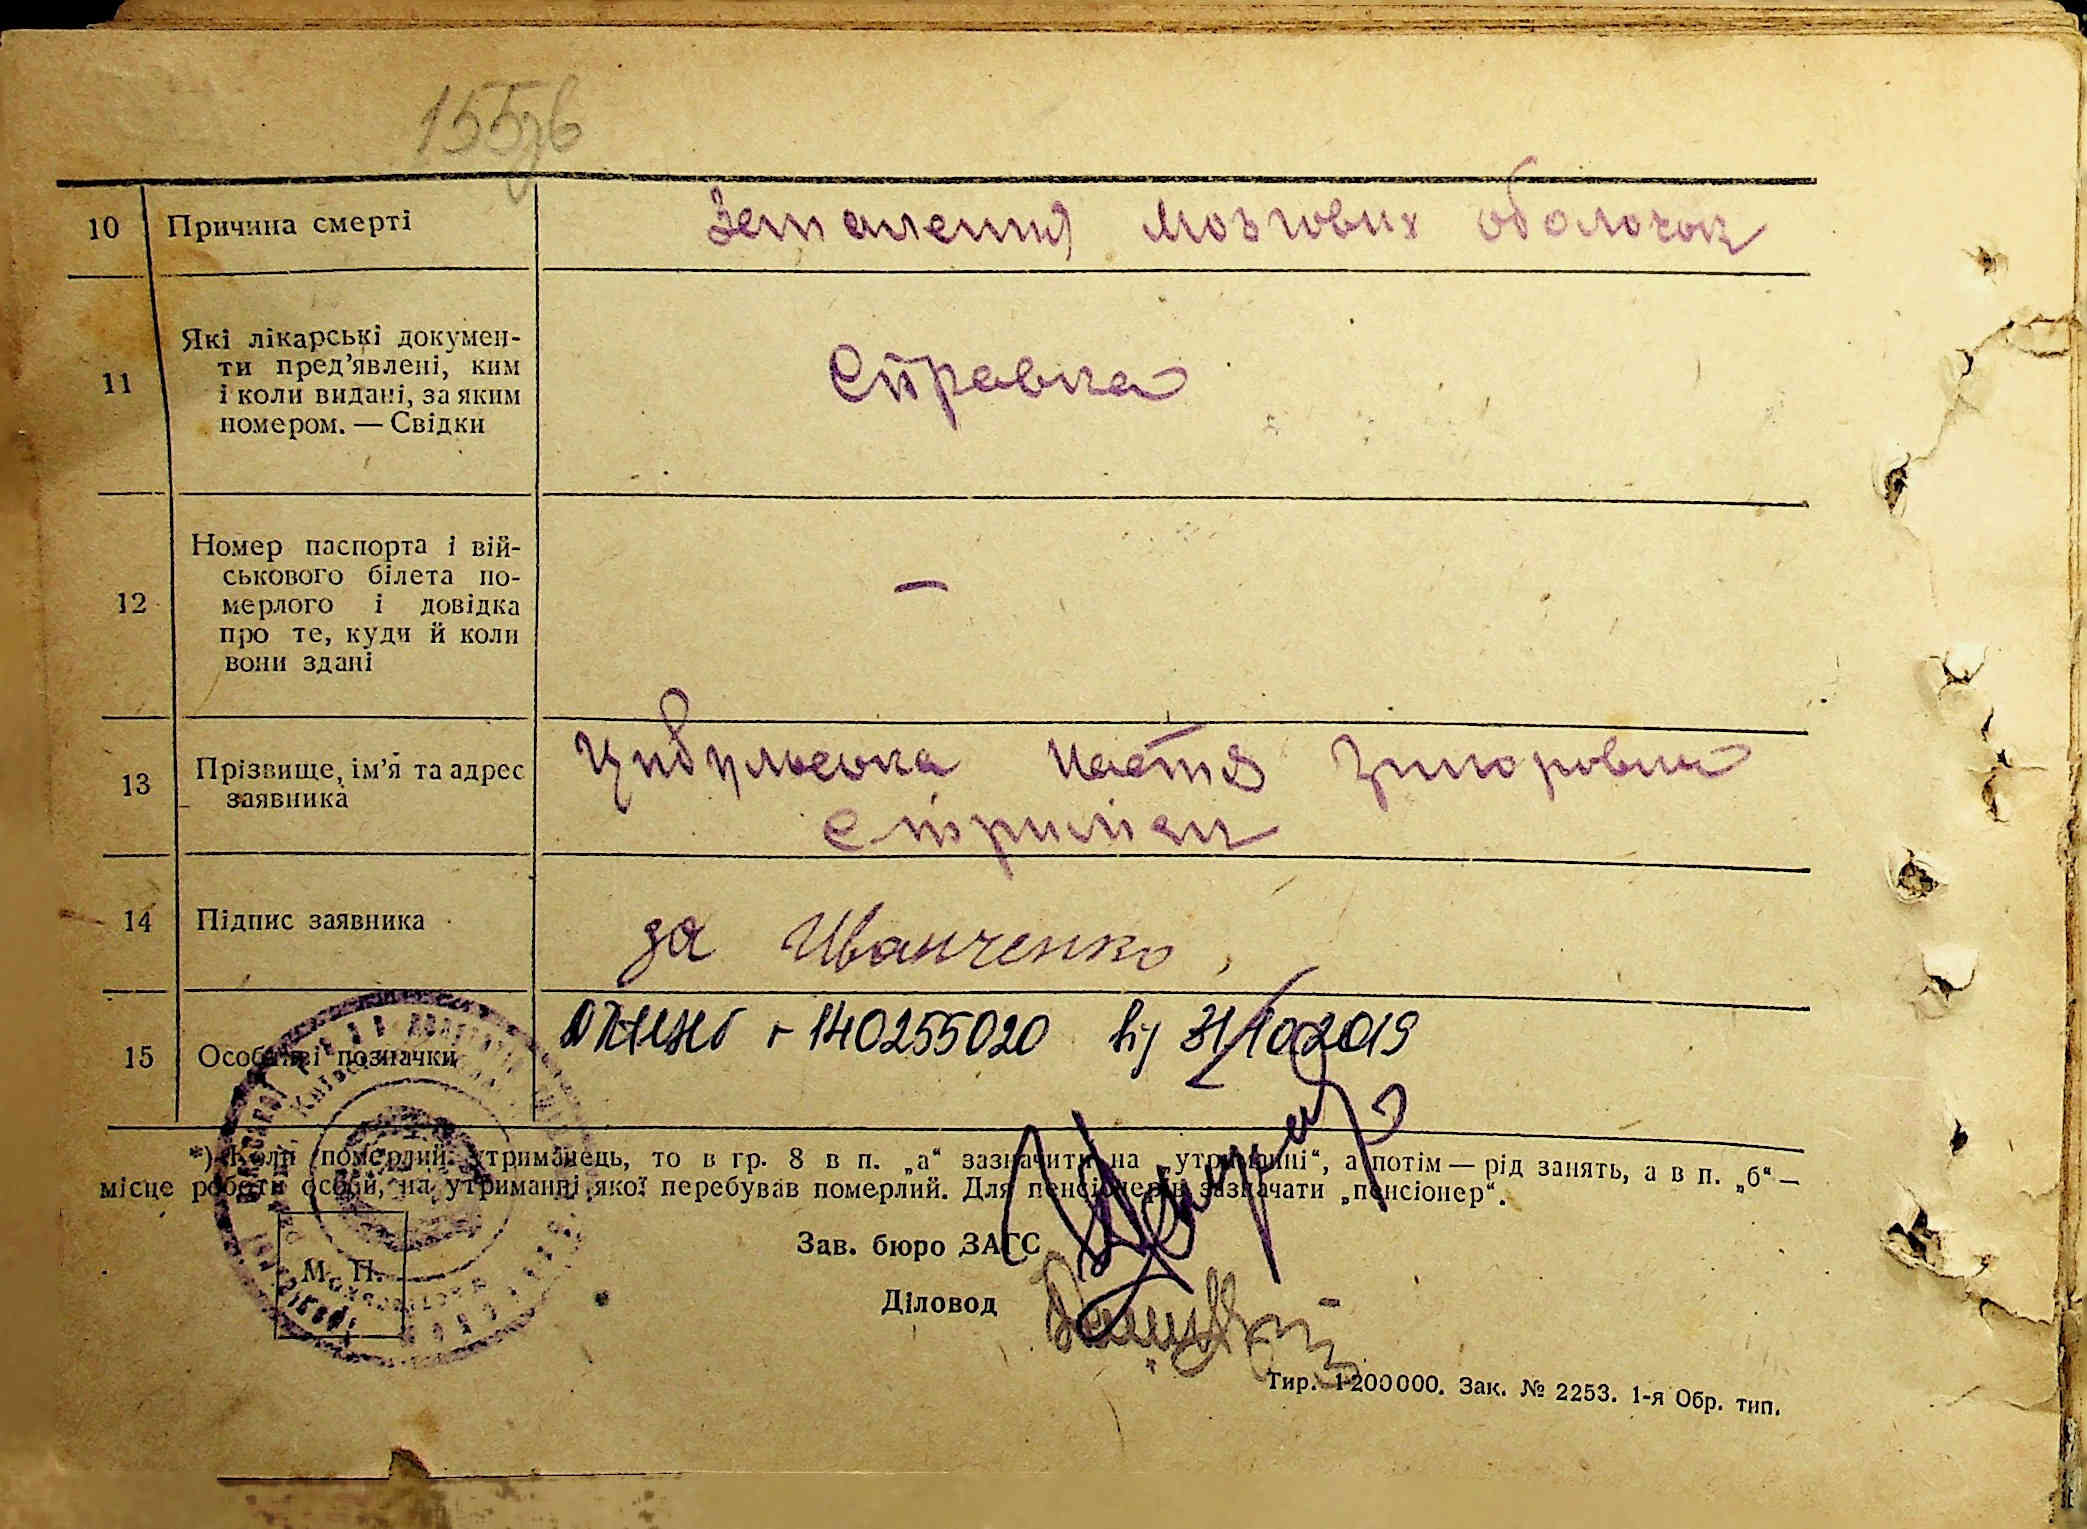 155зв
10 Причина смерті
Запалення мозгових оболочок
11 Які лікарські докумен-
ти пред’явлені, ким
і коли видані, за яким
номером. — Свідки
Справка
12 Номер паспорта і вій-
ськового білета по-
мерлого і довідка
про те, куди й коли
вони здані
—
13 Прізвище, ім’я та адрес
заявника
Цибульська Настя
14 Підпис заявника
за Иванченко
15 Особливі позначки
140255020 від 31/10 2019
*) Коли померлий утриманець, то в гр. 8 в п. „а“ зазначити на „утриманні“, а потім — рід занять, а в п. „б“ —
місце роботи особи, на утриманні якої перебував померлий. Для пенсіонерів зазначати „пенсіонер“.
Зав. бюро ЗАГС
М. П.
Діловод
Тир. 1·200000. Зак. № 2253. 1-я Обр. тип.